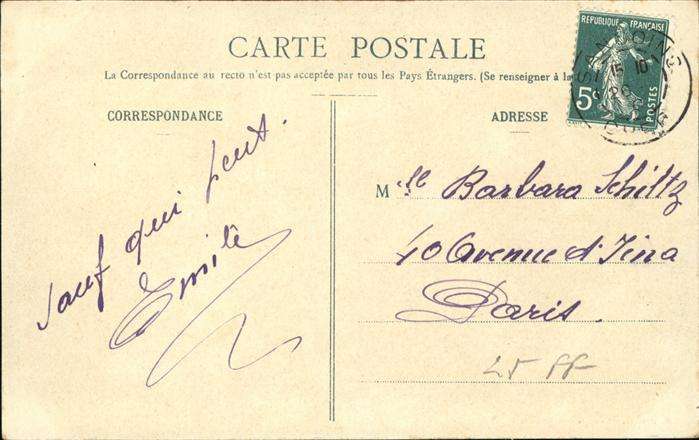 CARTE POSTALE
La Correspondance au recto n'est pas acceptée par tous les Pays Étrangers. (Se renseigner à la
CORRESPONDANCE
ADRESSE
REPUBLIQUE FRANÇAISE
5c
POSTES
15 10
sauf qui peut.
Emile
Mlle Barbara Schiltz
40 avenue d'Iéna
Paris.
25 FF